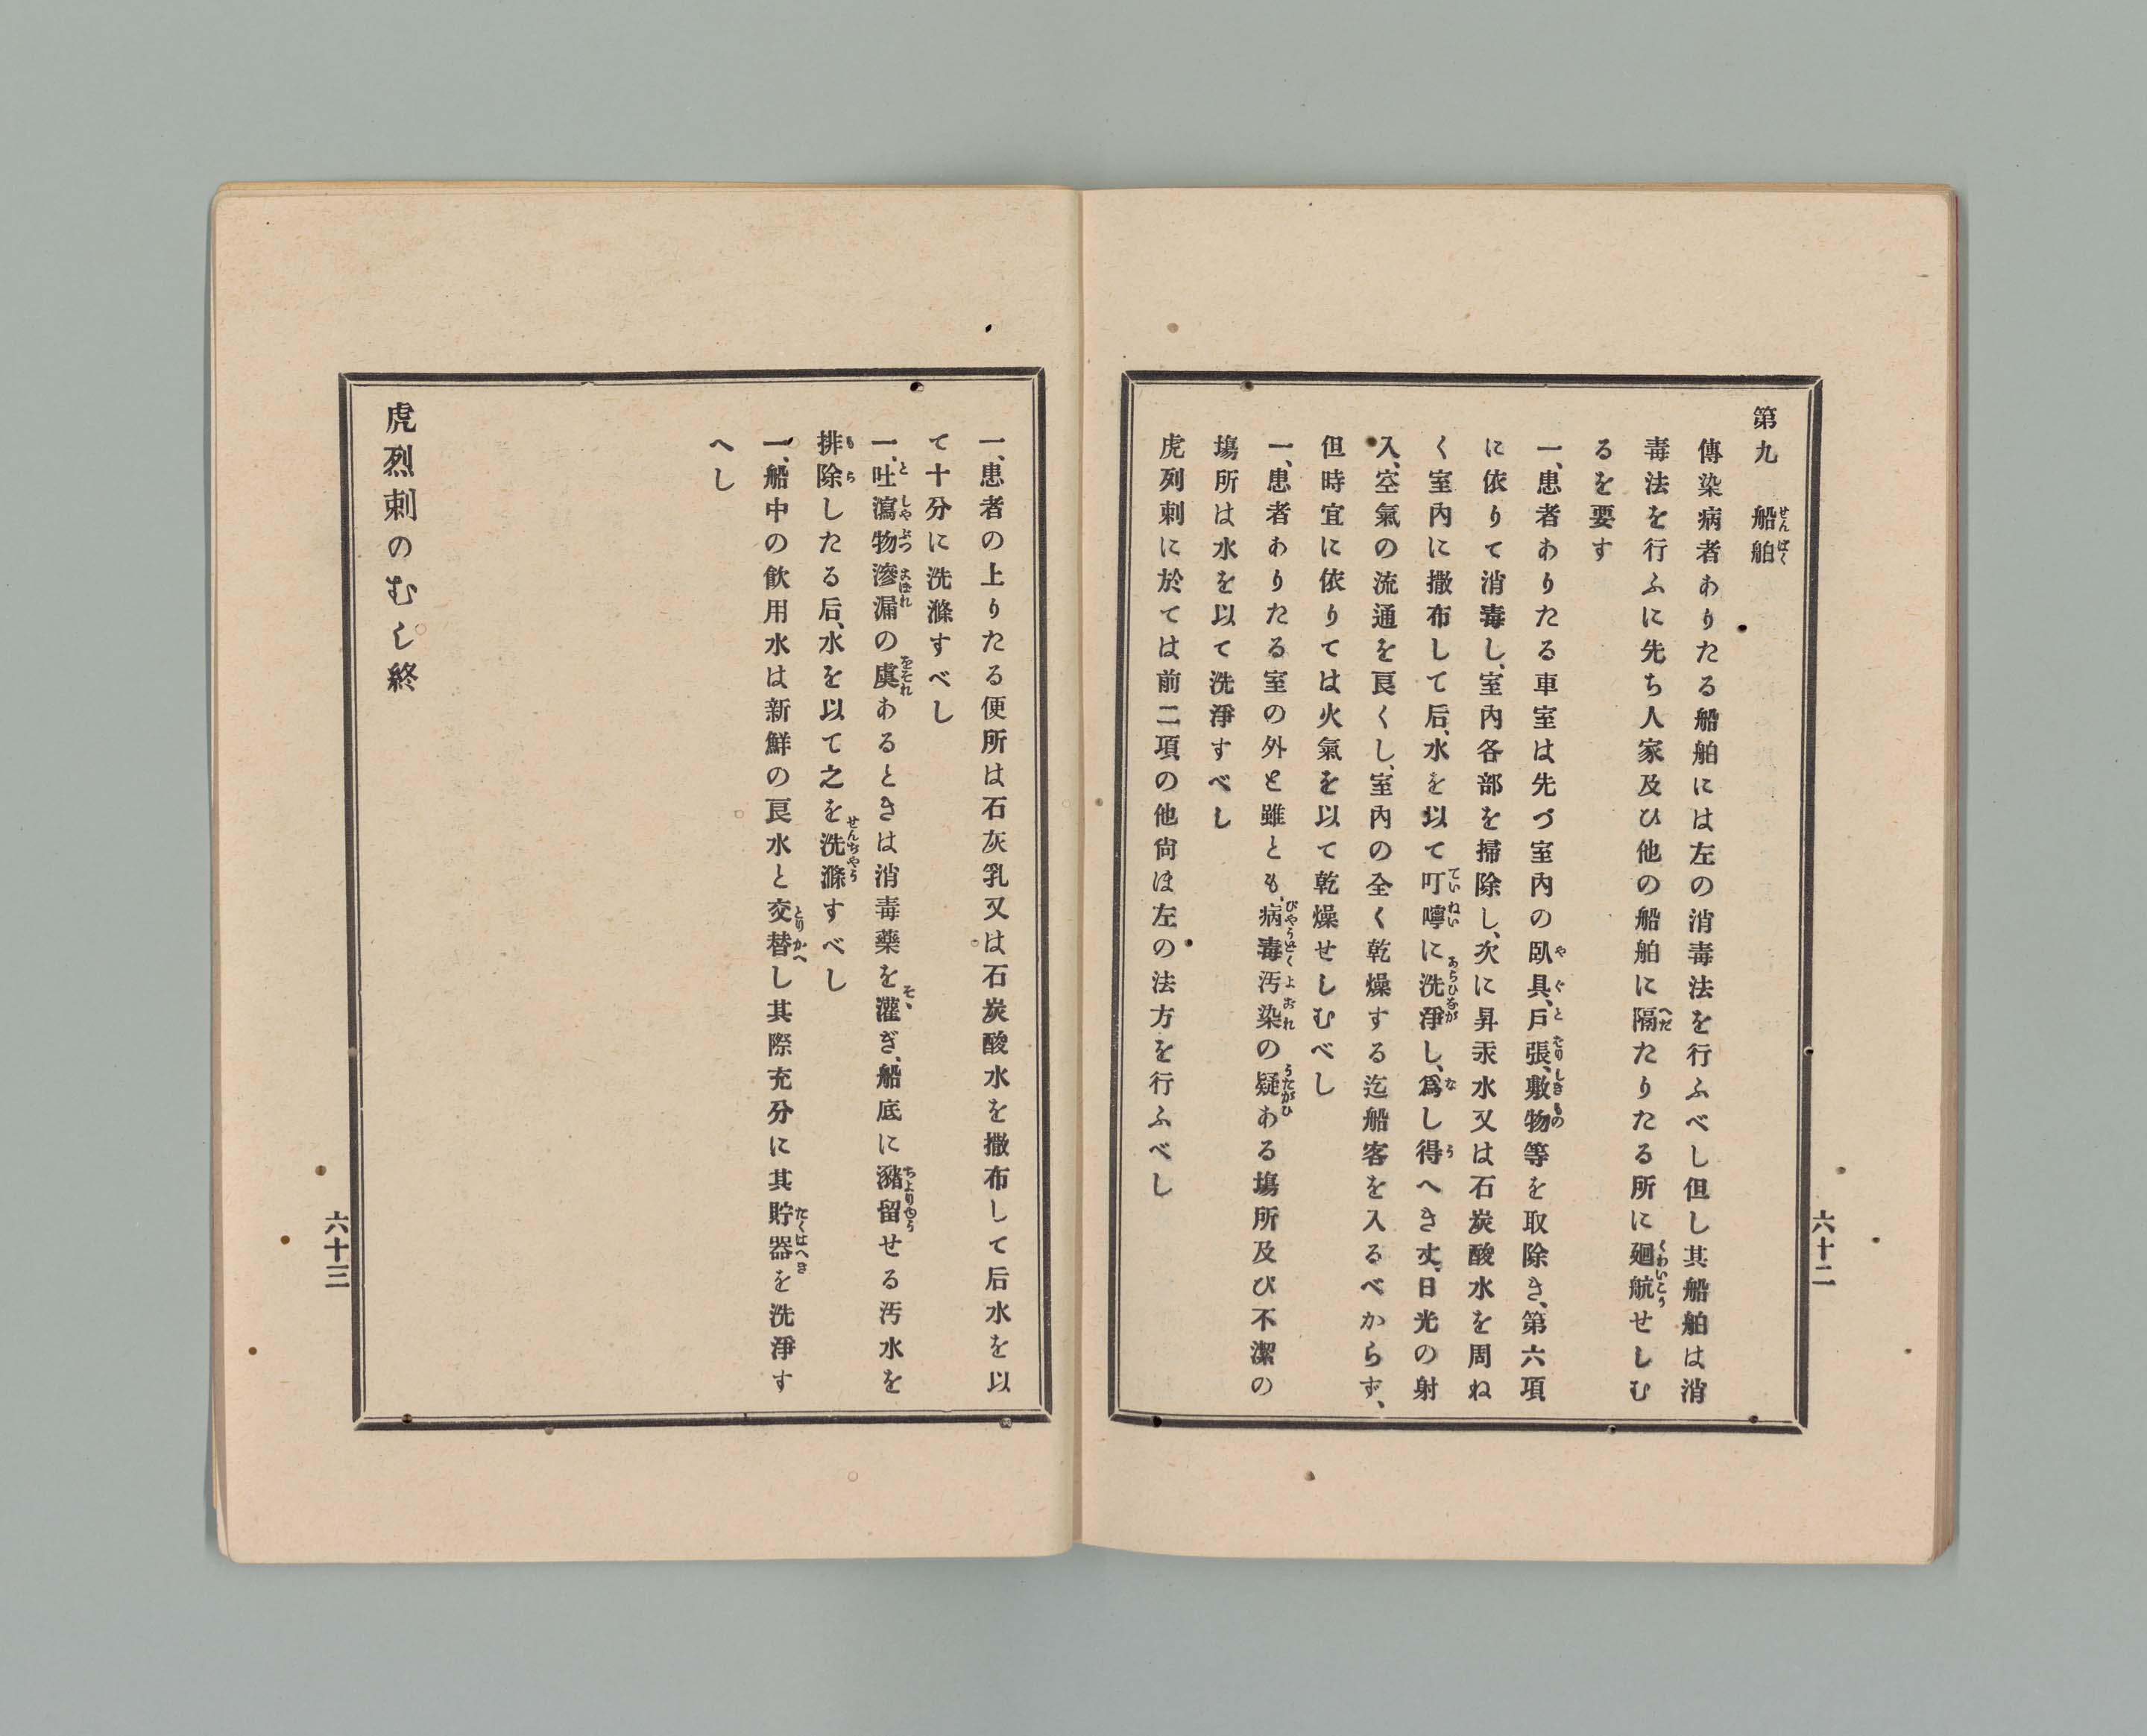 第九　船舶
傳染病者ありたる船舶には左の消毒法を行ふべし但し其船舶は消
毒法を行ふに先ち人家及ひ他の船舶に隔たりたる所に廻航せしむ
るを要す
一、患者ありたる車室は先づ室內の臥具、戶張、敷物等を取除き、第六項
に依りて消毒し、室內各部を掃除し、次に昇汞水又は石炭酸水を周ね
く室內に撒布して后、水を以て叮嚀に洗淨し、爲し得へき丈、日光の射
入、空氣の流通を良くし、室內の全く乾燥する迄船客を入るべからず、
但時宜に依りては火氣を以て乾燥せしむべし
一、患者ありたる室の外と雖とも、病毒汚染の疑ある塲所及び不潔の
塲所は水を以て洗淨すべし
虎列剌に於ては前二項の他尙ほ左の法方を行ふべし
六十二
一、患者の上りたる便所は石灰乳又は石炭酸水を撒布して后水を以
て十分に洗滌すべし
一、吐瀉物滲漏の虞あるときは消毒藥を灌ぎ、船底に瀦留せる汚水を
排除したる后、水を以て之を洗滌すべし
一、船中の飮用水は新鮮の良水と交替し其際充分に其貯器を洗淨す
へし
虎烈剌のむし終
六十三